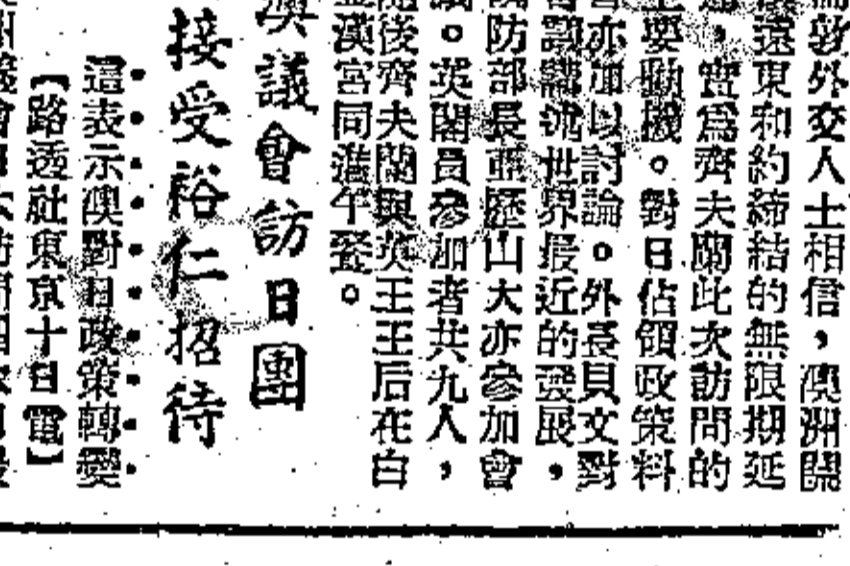 敦外交人士相信，澳洲關
遠東和約締結的無限期延
，實爲齊夫闌此次訪問的
主要動機。對日佔領政策料
亦加以討論。外長貝文對
世界最近的發展，
防部長亞歷山大亦參加會
。英閣員參加者共九人，
後齊夫闌與英王王后在白
金漢宮同進午餐。
澳議會訪日團
接受裕仁招待
這表示澳對日政策轉變
【路透社東京十日電】